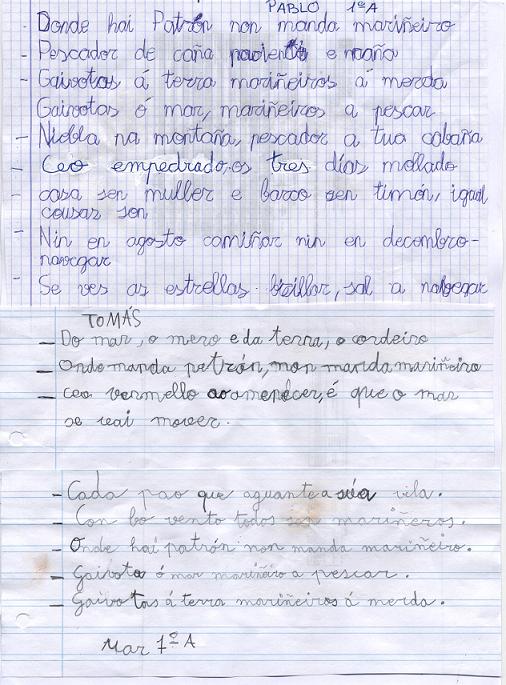 PABLO 1ºA
Donde hai Patrón non manda mariñeiro
- Pescador de caña e maña
- Gaivotas á terra mariñeiros á merda
Gaivotas ó mar, mariñeiros a pescar
- Niebla na montaña, pescador a tua cabaña
- Ceo empedrado, os tres días mollado
- casa sen muller e barco sen timón, igual
cousas son
- Nin en agosto camiñar nin en decembro-
navegar
- Se ves as estrellas brillar, sal a navegar
TOMÁS
- Do mar, o mero e da terra, o cordeiro
- Onde manda patrón, non manda mariñeiro
- ceo vermello ao amencer, é que o mar
se vai mover.
- Cada pao que aguante a súa vila.
- Con bo vento todos son mariñeros.
- Onde hai patrón non manda mariñeiro.
- Gaivota ó mar mariñeiro a pescar.
- Gaivotas á terra mariñeiros á merda.
Mar 1º A